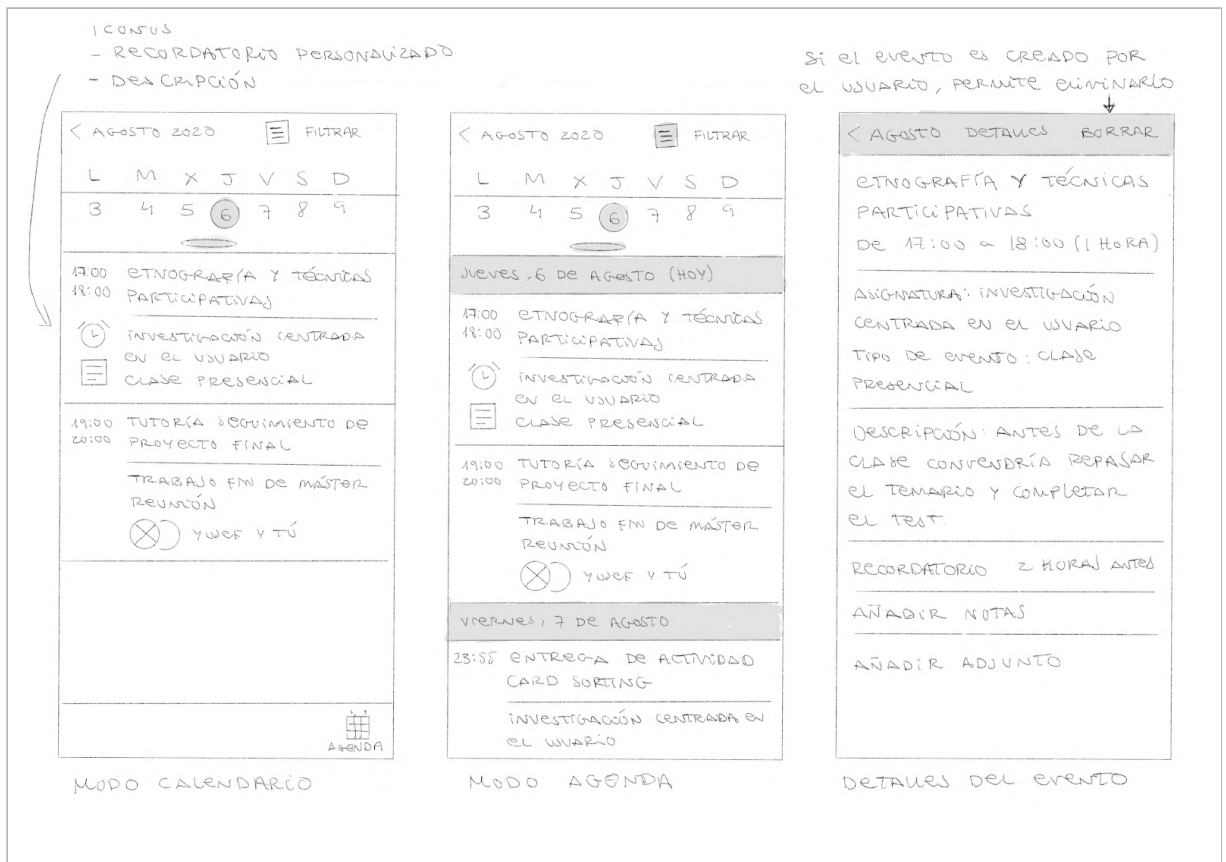 ICONOS
- RECORDATORIO PERSONALIZADO
- DESCRIPCIÓN
SI EL EVENTO ES CREADO POR
EL USUARIO, PERMITE ELIMINARLO
< AGOSTO 2020 FILTRAR
L M X J V S D
3 4 5 6 7 8 9
17:00 ETNOGRAFÍA Y TÉCNICAS
18:00 PARTICIPATIVAS
INVESTIGACIÓN CENTRADA
EN EL USUARIO
CLASE PRESENCIAL
19:00 TUTORÍA SEGUIMIENTO DE
20:00 PROYECTO FINAL
TRABAJO FIN DE MÁSTER
REUNIÓN
YUSEF Y TÚ
AGENDA
MODO CALENDARIO
< AGOSTO 2020 FILTRAR
L M X J V S D
3 4 5 6 7 8 9
JUEVES, 6 DE AGOSTO (HOY)
17:00 ETNOGRAFÍA Y TÉCNICAS
18:00 PARTICIPATIVAS
INVESTIGACIÓN CENTRADA
EN EL USUARIO
CLASE PRESENCIAL
19:00 TUTORÍA SEGUIMIENTO DE
20:00 PROYECTO FINAL
TRABAJO FIN DE MÁSTER
REUNIÓN
YUSEF Y TÚ
VIERNES, 7 DE AGOSTO
23:55 ENTREGA DE ACTIVIDAD
CARD SORTING
INVESTIGACIÓN CENTRADA EN
EL USUARIO
MODO AGENDA
< AGOSTO DETALLES BORRAR
ETNOGRAFÍA Y TÉCNICAS
PARTICIPATIVAS
DE 17:00 a 18:00 (1 HORA)
ASIGNATURA: INVESTIGACIÓN
CENTRADA EN EL USUARIO
TIPO DE EVENTO: CLASE
PRESENCIAL
DESCRIPCIÓN: ANTES DE LA
CLASE CONVENDRÍA REPASAR
EL TEMARIO Y COMPLETAR
EL TEST.
RECORDATORIO 2 HORAS ANTES
AÑADIR NOTAS
AÑADIR ADJUNTO
DETALLES DEL EVENTO